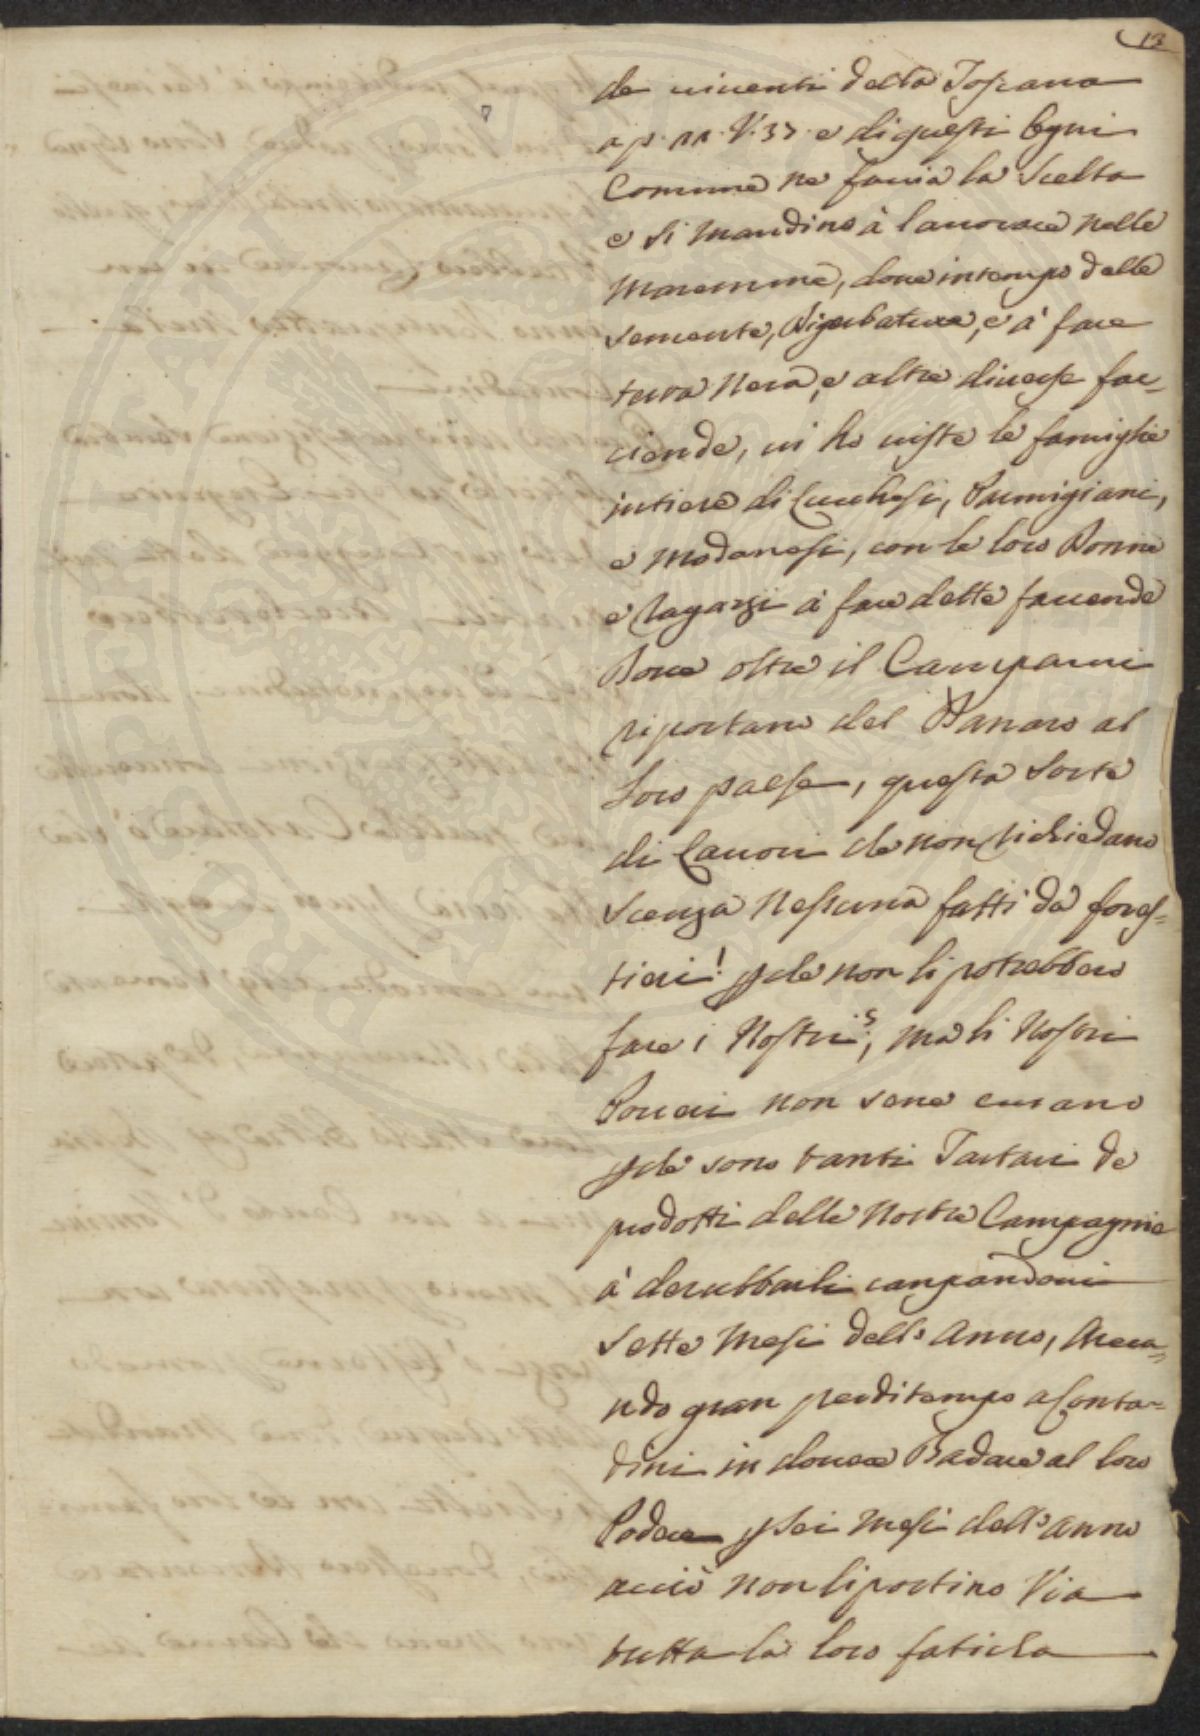 13
de viventi della Toscana
a p. 11. V. 37. e di questi Ogni
Comune ne facia la Scelta
e si mandino à lavorare nelle
Maremme, dove in tempo delle
semente, e à fare
terra Nera, e altre diverse fac=
ciende, vi ho viste le famiglie
intiere di Lucchesi, Parmigiani,
e Modanesi, con le loro Donne
e Ragazzi à fare dette faccende
Dove oltre il Camparvi
riportano del Danaro al
Loro paese, questa Sorte
di Lavori che non Richiedano
Scenza Nessuna fatti da fores=
tieri! p che non li potrebbero
fare i Nostri?; ma li Nostri
Poveri non sene curano
p che sono tanti Tartari de
prodotti delle Nostre Campagnie
à derubbarli campandovi
Sette Mesi dell'Anno, Areca=
ndo gran perditempo a Conta=
dini in dovere Badare al loro
Podere p Sei Mesi dell'anno
acciò non li portino Via
tutta la loro faticha
PROPRIETATI PVBL